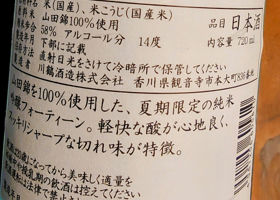 米(国産)、米こうじ(国産米)
山田錦100%使用
58% アルコール分 14度
下部に記載
直射日光をさけて冷暗所で保管してください
川鶴酒造株式会社 香川県観音寺市本大町836番地
品目 日本酒
内容量 720ml
山田錦を100%使用した、夏期限定の純米
吟醸フォーティーン。軽快な酸が心地良く、
スッキリシャープな切れ味が特徴。
になってから美味しく適量を
授乳期の飲酒は控えてください
法律で禁止さ